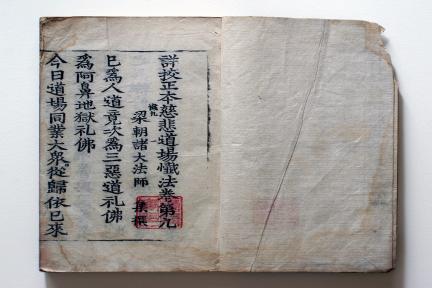 詳校正本慈悲道場懺法卷第九
梁朝諸大法師 集撰
已為人道竟次為三惡道礼佛
為阿鼻地獄礼佛
今日道場同業大衆從歸依已來